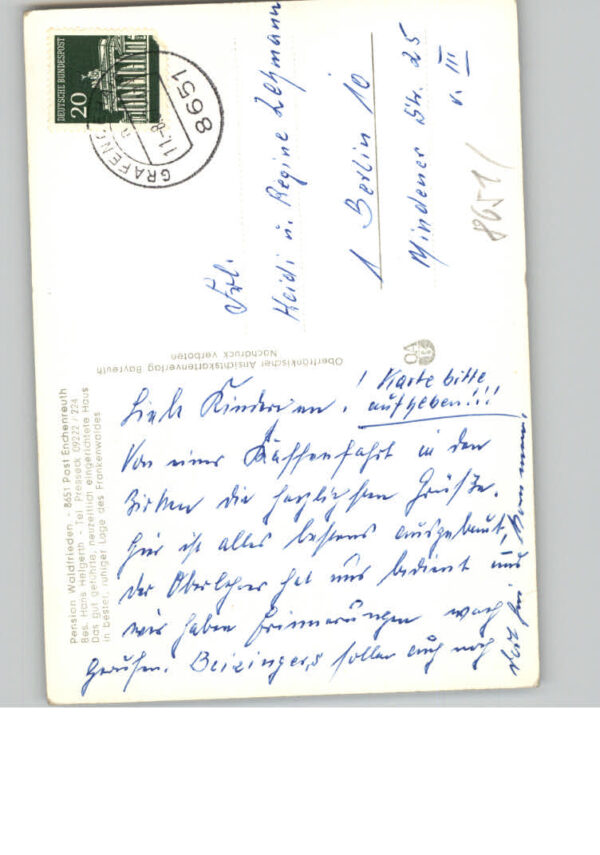 DEUTSCHE BUNDESPOST
20
8651
GRAFENG
11.-8.
Frl.
Heidi u. Regine Lehmann
1 Berlin 10
Mindener Str. 25
v. III
8651/
Oberfränkischer Ansichtskartenverlag Bayreuth
Nachdruck verboten
OA
Pension Waldfrieden - 8651 Post Enchenreuth
Bes. Hans Helgerth - Tel. Presseck 09222 / 224
Das gut geführte, neuzeitlich eingerichtete Haus
in bester, ruhiger Lage des Frankenwaldes
! Karte bitte
aufheben!!!
Liebe Kinder
Von einer Kaffeefahrt in den
die herzlichsten Grüße.
Hier ist alles bestens ausgebaut,
der Oberlehrer hat uns bedient und
wir haben Erinnerungen wach
gerufen. sollen auch noch